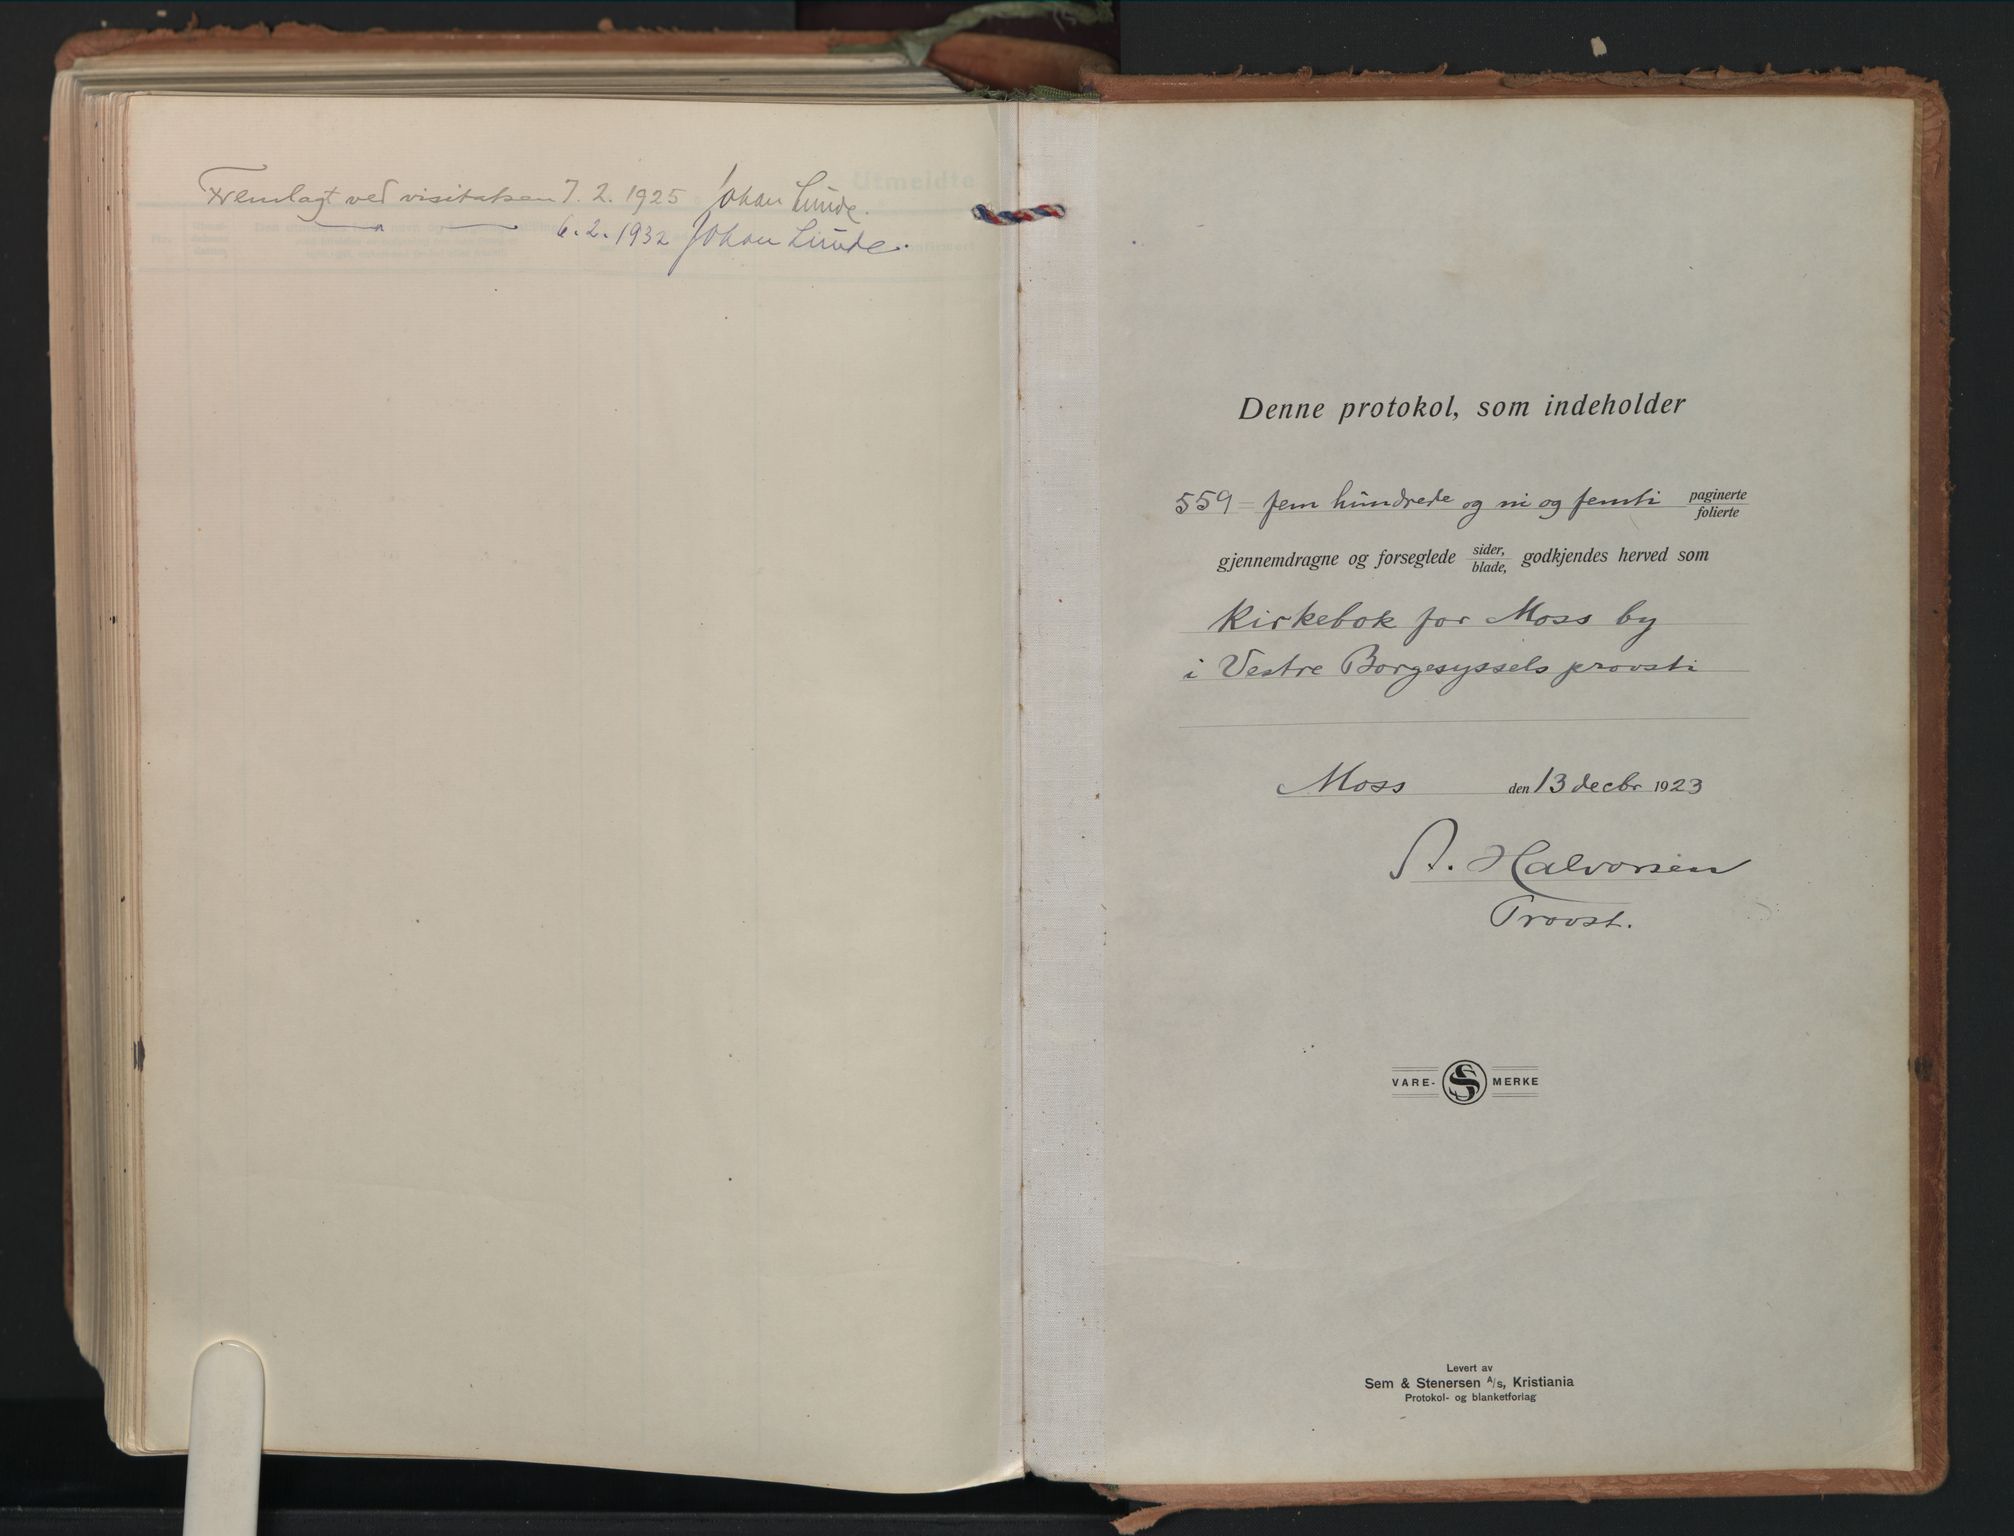 Fremlagt ved visitatsen 7. 2. 1925 Johan Lunde.
— " — 6. 2. 1932 Johan Lunde.
Utmeldte
Denne protokol, som indeholder
559 = fem hundrede og ni og femti paginerte
folierte
gjennemdragne og forseglede sider, godkjendes herved som
blade,
Kirkebok for Moss by
i Vestre Borgesyssels provsti
Moss den 13 decbr 1923
A. Halvorsen
Provst.
VARE- S MERKE
Levert av
Sem & Stenersen A/s, Kristiania
Protokol- og blanketforlag